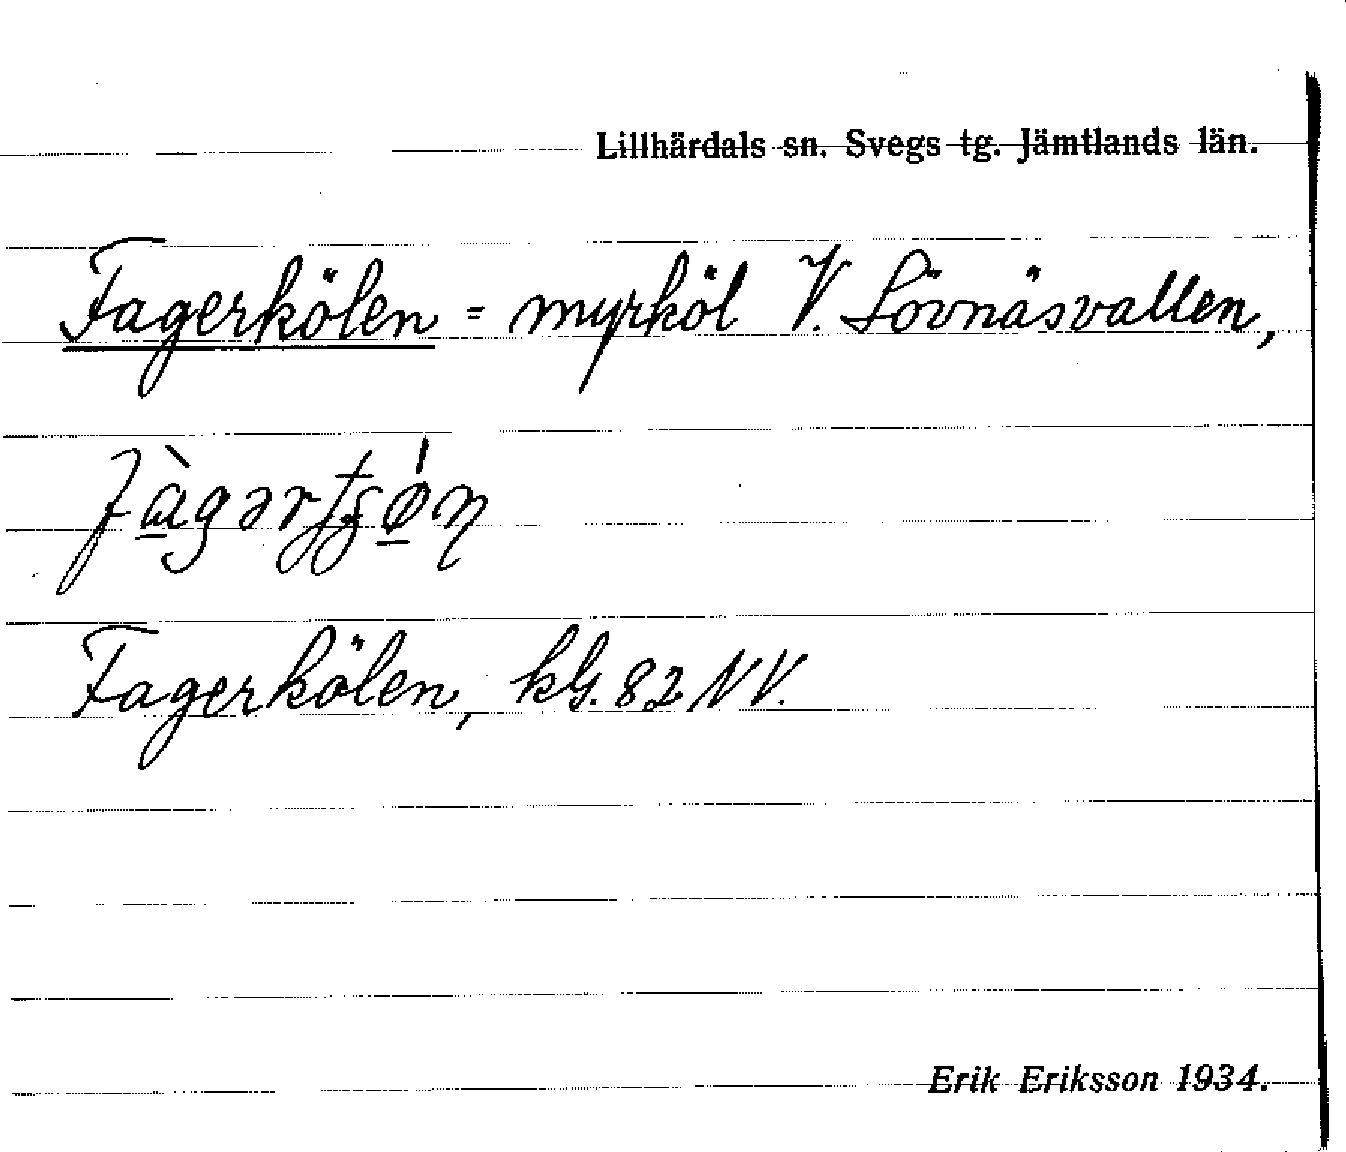 Lillhärdals sn. Svegs tg. Jämtlands län.
Fagerkölen = myrköl V. Lövnäsvallen,
Fagerkölen, kbl. 82 NV.
Erik Eriksson 1934.